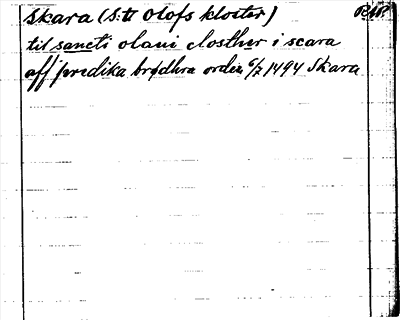 Skara (S:t Olofs kloster)
til sancti olaui closther i scara
aff predika brødhra orden 6/7 1494 Skara